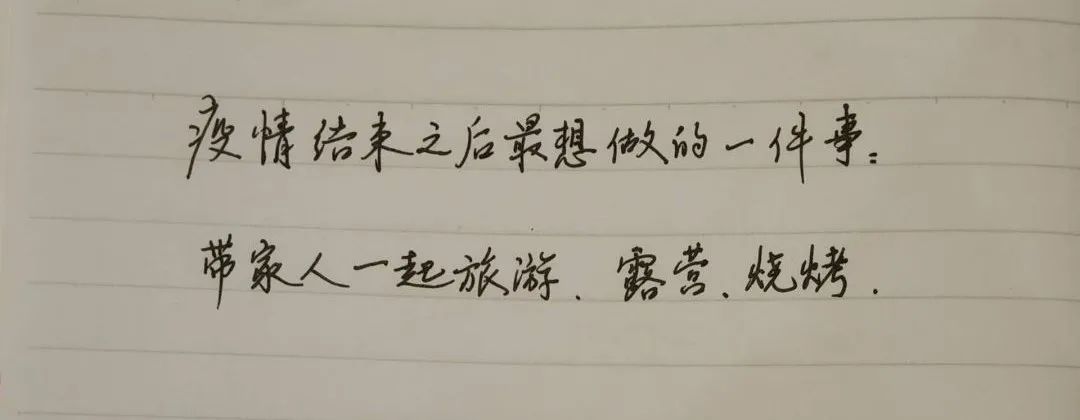 疫情结束之后最想做的一件事：
带家人一起旅游、露营、烧烤.